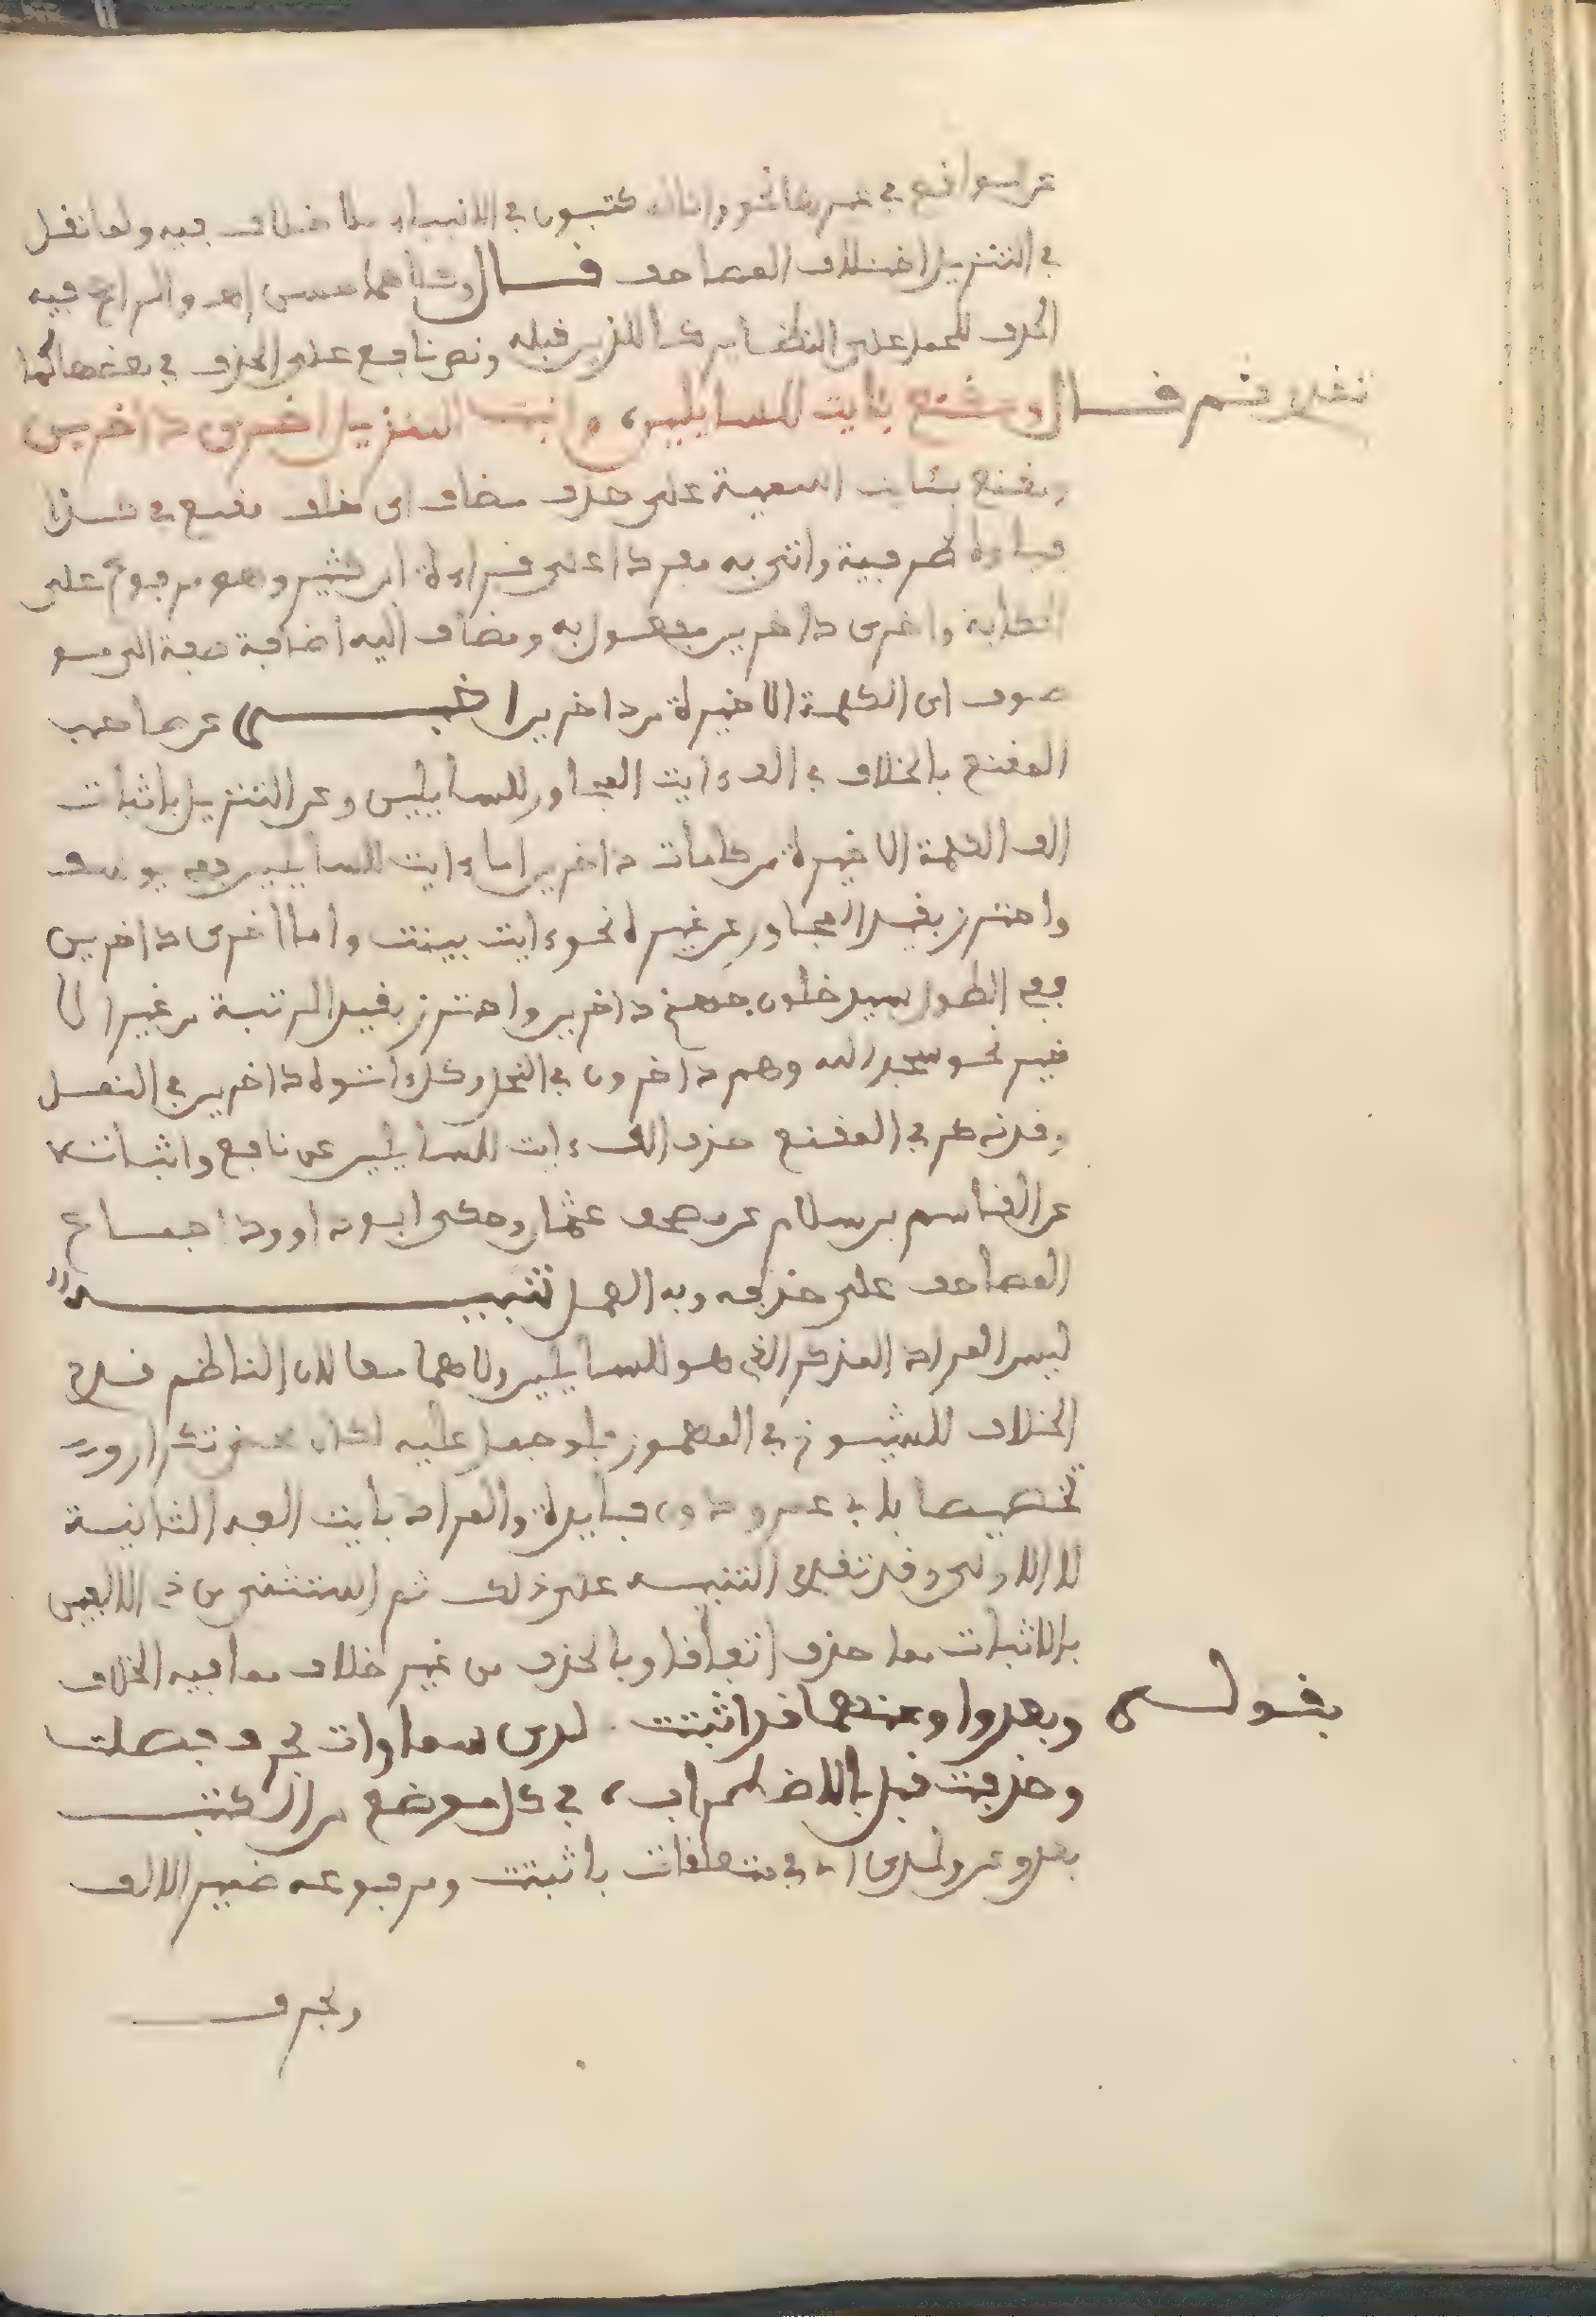 في التنزيل اختلاف المصاحف قـــال وكلاهما حسن اهـ والراجح فيه
الحذف للحمل على النظائر كاللذين قبله ونص نافع على الحذف في بعضها كما
تقدم ثم قـــال ومقنع بآيت للسايلين، واثبت التنزيل اخرى داخرين
ومقنع بثابت المعية على حذف مضاف اى خلف مقنع في هذا
فباؤه ظرفية واتى به مفردا على قراءة ابن كثير وهو مرفوع على
الحكاية واخرى داخرين مفعول به ومضاف اليه اضافة صفة الى مو
صوف اى الكلمة الاخيرة من داخرين اخبـــر عن صاحب
المقنع بالخلاف في الف ءايت المجاور للسايلين وعن التنزيل باثبات
الف الكلمة الاخيرة من كلمات داخرين اما ءايت للسايلين ففي يوسف
واحترز بقيد المجاور عن غيره نحو ءايت بينت واما اخرى داخرين
ففي الطول سيدخلون جهنم داخرين واحترز بقيد المرتبة من غير الا
خير نحو سجدا لله وهم داخرون في النحل وكل اتوه داخرين في النمل
وقد ذكر في المقنع حذف الف ءايت للسايلين عن نافع واثباته
عن القاسم بن سلام عن مصحف عثمان وحكى ابو داوود اجماع
المصاحف على حذفه وبه العمل تنبيـــه
ليس المراد المذكر الذي هو للسايلين ولا هما معا لان الناظم قدم
الخلاف للشيوخ في المهموز فلو حمل عليه لكان محض تكرار و
تخصيصا بابي عمرو دون فايدة والمراد بآيت الفه الثانية
لا الاولى وقد تقدم التنبيه على ذلك ثم استثنى من ذي الالفين
بالاثبات مما حذف اتفاقا وبالحذف من غير خلاف مما فيه الخلاف
بقولـــه وبعد واو عنهما قد اثبتت . لدى سماوات بحرف فصلت
وحذفت قبل بلا اضطراب، في كل موضع من الكتـــب
بعد وعن ولدى متعلقات باثبتت ومرفوعه ضمير الالف
وبحرف